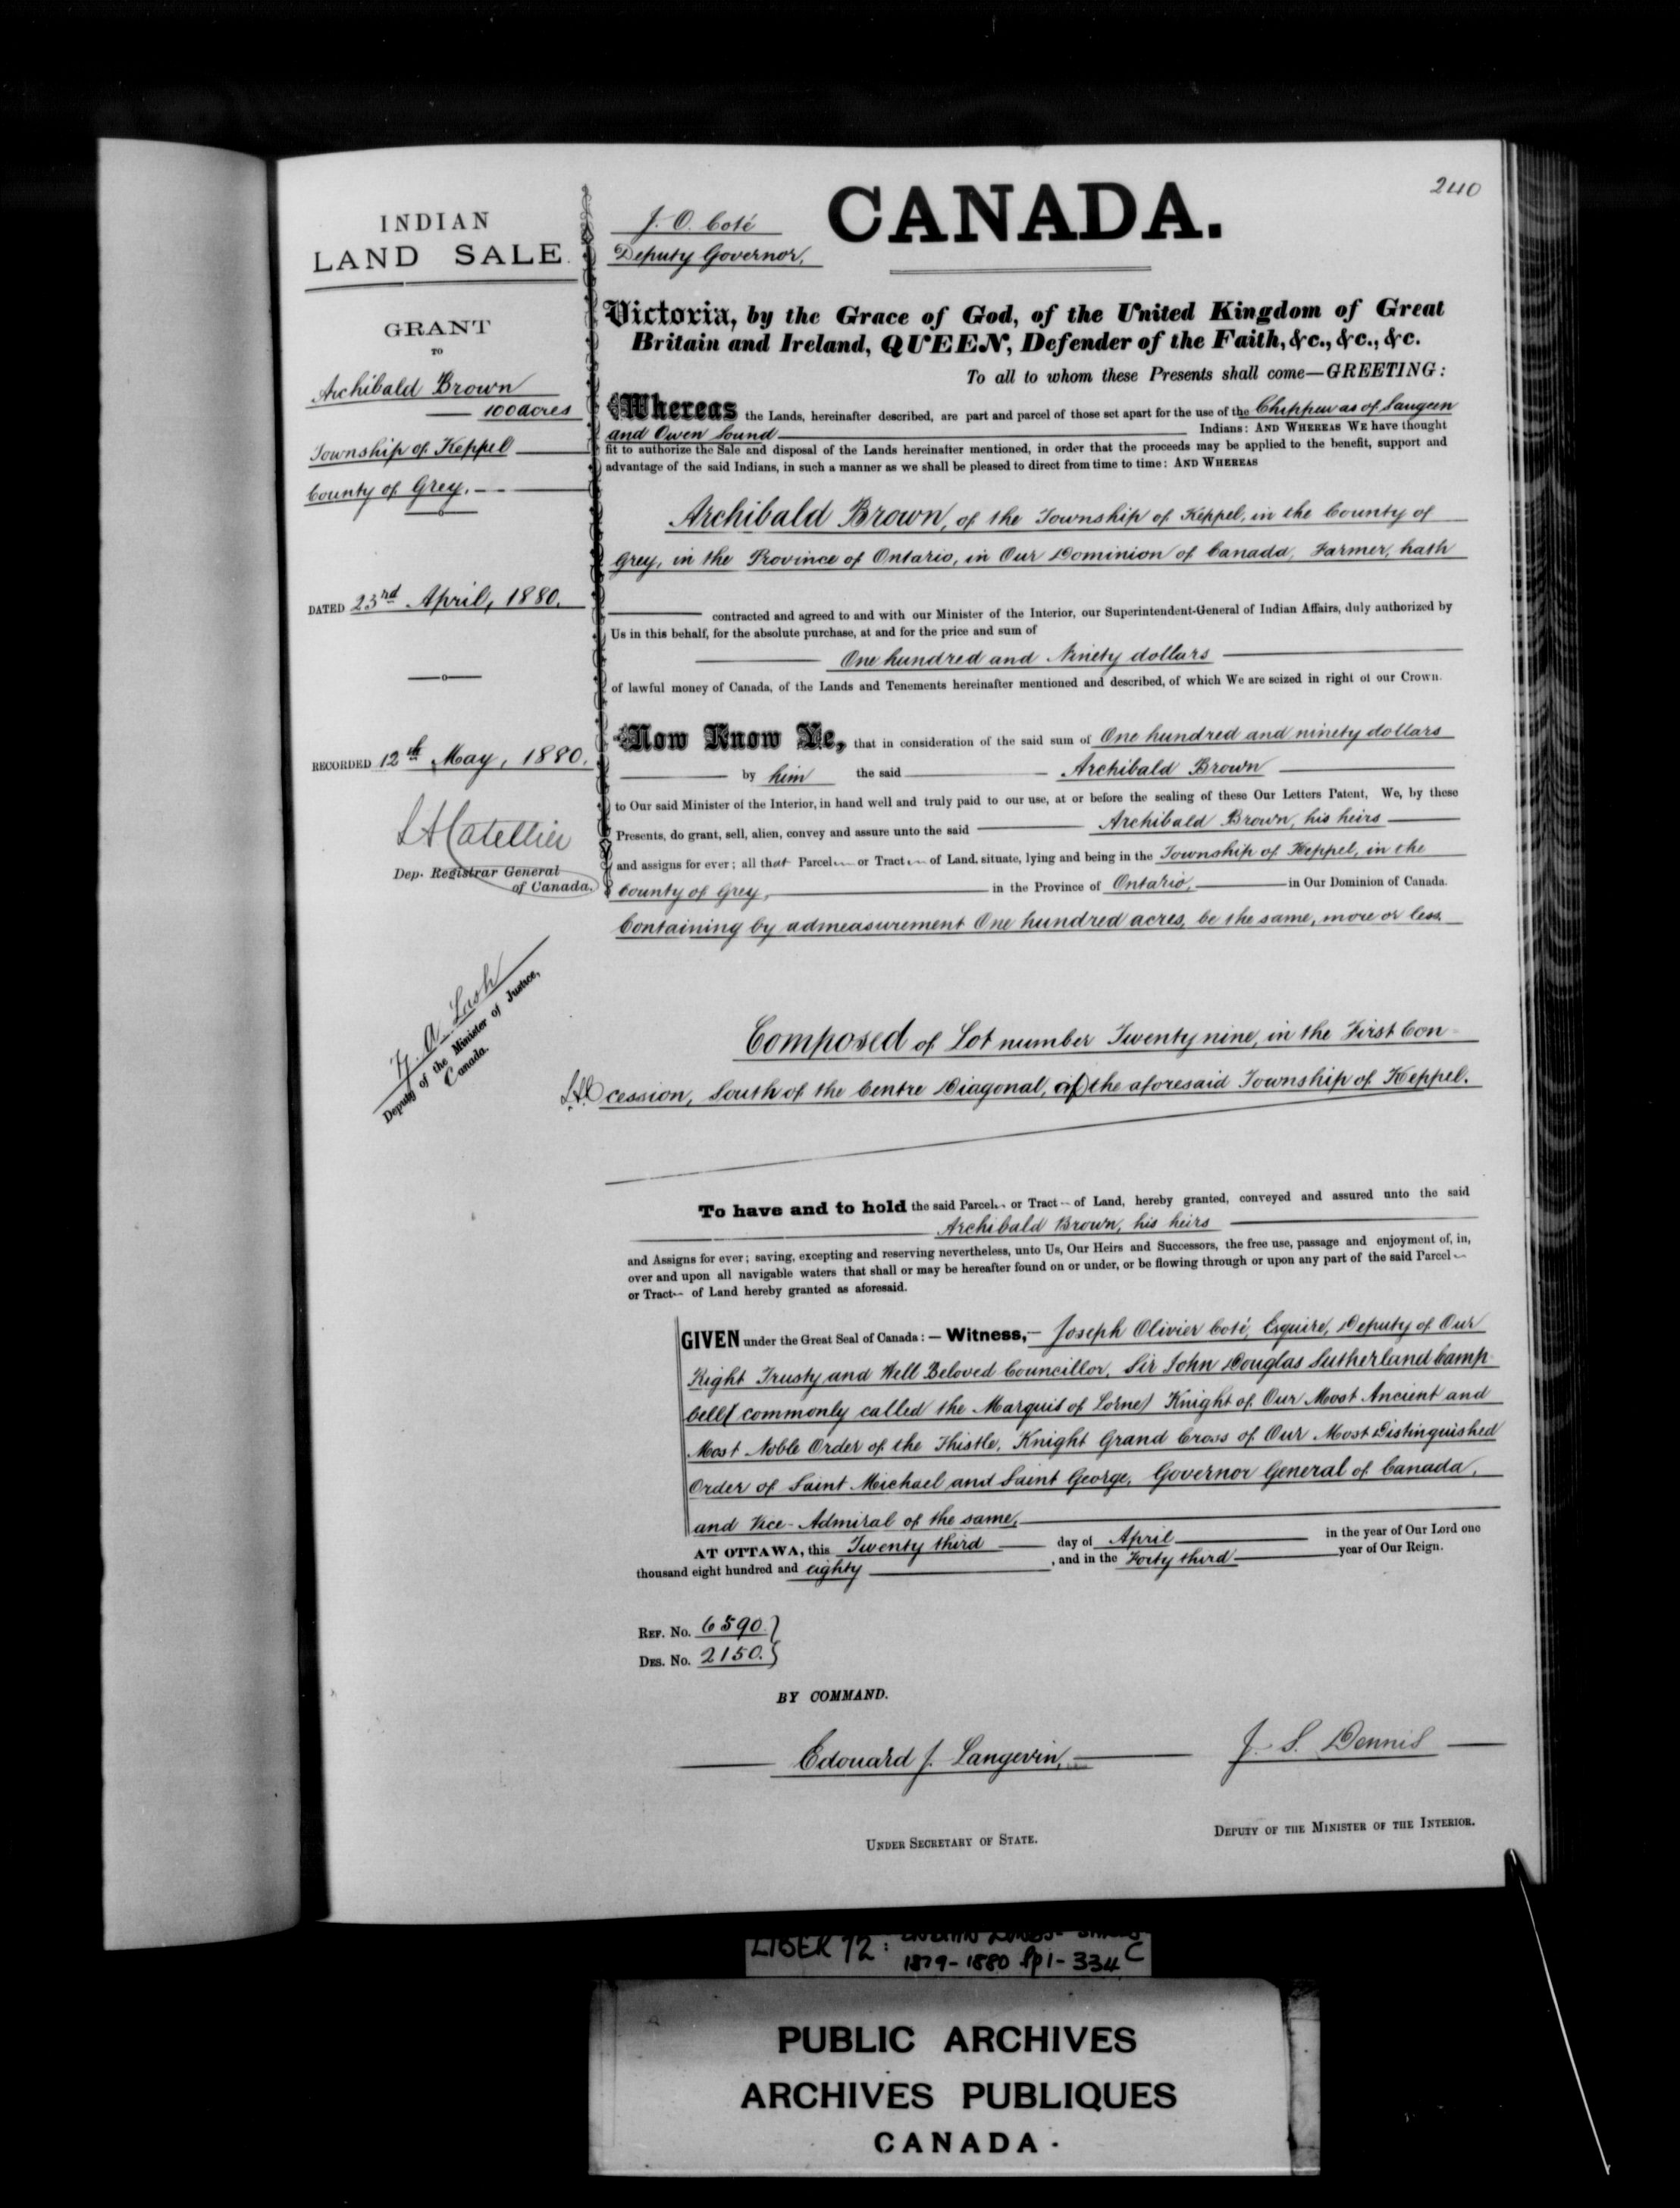 240
INDIAN
LAND SALE.
GRANT
TO
Archibald Brown
100 acres
Township of Keppel
County of Grey.
DATED 23rd April, 1880.
RECORDED 12th May, 1880.
Dep. Registrar General
of Canada.
Z. A. Lash
Deputy of the Minister of Justice,
Canada.
J. O. Coté
Deputy Governor.
CANADA.
Victoria, by the Grace of God, of the United Kingdom of Great
Britain and Ireland, QUEEN, Defender of the Faith, &c., &c., &c.
To all to whom these Presents shall come—GREETING:
Whereas the Lands, hereinafter described, are part and parcel of those set apart for the use of the Chippewas of Saugeen
and Owen Sound Indians: AND WHEREAS WE have thought
fit to authorize the Sale and disposal of the Lands hereinafter mentioned, in order that the proceeds may be applied to the benefit, support and
advantage of the said Indians, in such a manner as we shall be pleased to direct from time to time: AND WHEREAS
Archibald Brown, of the Township of Keppel, in the County of
Grey, in the Province of Ontario, in Our Dominion of Canada, Farmer, hath
contracted and agreed to and with our Minister of the Interior, our Superintendent-General of Indian Affairs, duly authorized by
Us in this behalf, for the absolute purchase, at and for the price and sum of
One hundred and Ninety dollars
of lawful money of Canada, of the Lands and Tenements hereinafter mentioned and described, of which We are seized in right of our Crown.
Now Know Ye, that in consideration of the said sum of One hundred and ninety dollars
by him the said Archibald Brown
to Our said Minister of the Interior, in hand well and truly paid to our use, at or before the sealing of these Our Letters Patent, We, by these
Presents, do grant, sell, alien, convey and assure unto the said Archibald Brown, his heirs
and assigns for ever; all that Parcel or Tract of Land, situate, lying and being in the Township of Keppel, in the
County of Grey, in the Province of Ontario, in Our Dominion of Canada.
Containing by admeasurement One hundred acres, be the same, more or less.
Composed of Lot number Twenty nine, in the First Con-
cession, South of the Centre Diagonal, of the aforesaid Township of Keppel.
To have and to hold the said Parcel or Tract of Land, hereby granted, conveyed and assured unto the said
Archibald Brown, his heirs
and Assigns for ever; saving, excepting and reserving nevertheless, unto Us, Our Heirs and Successors, the free use, passage and enjoyment of, in,
over and upon all navigable waters that shall or may be hereafter found on or under, or be flowing through or upon any part of the said Parcel
or Tract of Land hereby granted as aforesaid.
GIVEN under the Great Seal of Canada:— Witness,— Joseph Olivier Coté, Esquire, Deputy of Our
Right Trusty and Well Beloved Councillor, Sir John Douglas Sutherland Camp-
bell (commonly called the Marquis of Lorne) Knight of Our Most Ancient and
Most Noble Order of the Thistle, Knight Grand Cross of Our Most Distinguished
Order of Saint Michael and Saint George, Governor General of Canada,
and Vice-Admiral of the same,
AT OTTAWA, this Twenty third day of April in the year of Our Lord one
thousand eight hundred and eighty, and in the Forty third year of Our Reign.
REF. No. 6590.
DES. No. 2150.
BY COMMAND.
Edouard J. Langevin,
J. S. Dennis
UNDER SECRETARY OF STATE.
DEPUTY OF THE MINISTER OF THE INTERIOR.
LIBER 92:
1879-1880 Pp 1-334 C
PUBLIC ARCHIVES
ARCHIVES PUBLIQUES
CANADA